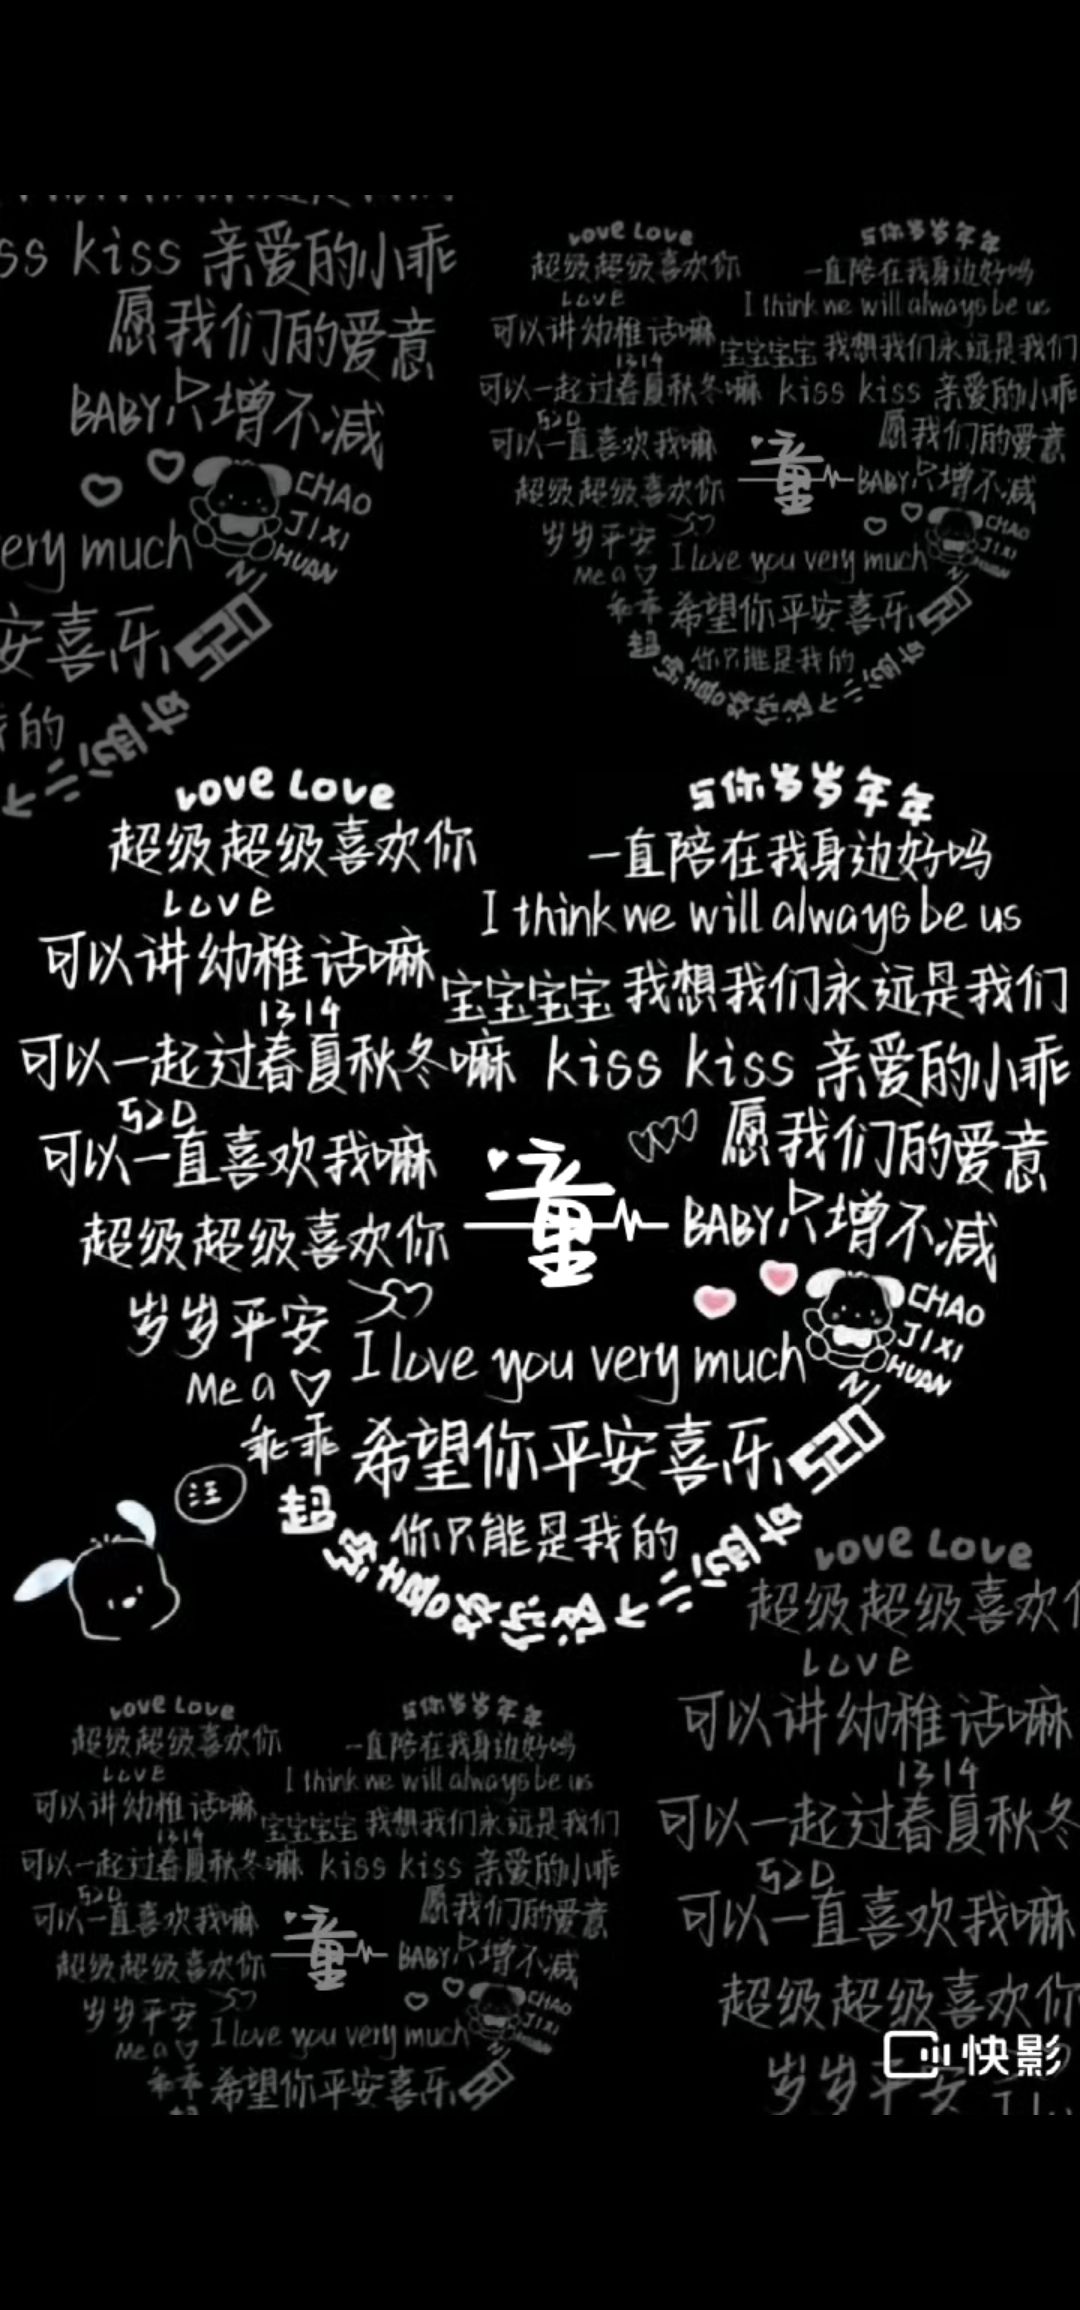 ss kiss 亲爱的小乖
愿我们的爱意
BABY 只增不减
CHAO
JIXI
HUAN
NI
ery much
安喜乐 520
我的
Love Love
与你岁岁年年
超级超级喜欢你
一直陪在我身边好吗
LOVE
I think we will always be us
可以讲幼稚话嘛
宝宝宝宝 我想我们永远是我们
1314
可以一起过春夏秋冬嘛 kiss kiss 亲爱的小乖
520
愿我们的爱意
可以一直喜欢我嘛
童
BABY 只增不减
超级超级喜欢你
CHAO
JIXI
HUAN
NI
岁岁平安
I love you very much
Me a
乖乖 希望你平安喜乐 520
你只能是我的
Love Love
与你岁岁年年
超级超级喜欢你
一直陪在我身边好吗
LOVE
I think we will always be us
可以讲幼稚话嘛
宝宝宝宝 我想我们永远是我们
1314
可以一起过春夏秋冬嘛 kiss kiss 亲爱的小乖
520
愿我们的爱意
可以一直喜欢我嘛
童
BABY 只增不减
超级超级喜欢你
CHAO
JIXI
HUAN
NI
岁岁平安
I love you very much
Me a
乖乖 希望你平安喜乐 520
汪
你只能是我的
Love Love
超级超级喜欢
LOVE
可以讲幼稚话嘛
1314
可以一起过春夏秋冬
520
可以一直喜欢我嘛
超级超级喜欢你
岁岁平安
Love Love
与你岁岁年年
超级超级喜欢你
一直陪在我身边好吗
LOVE
I think we will always be us
可以讲幼稚话嘛
宝宝宝宝 我想我们永远是我们
1314
可以一起过春夏秋冬嘛 kiss kiss 亲爱的小乖
520
愿我们的爱意
可以一直喜欢我嘛
童
BABY 只增不减
超级超级喜欢你
CHAO
JIXI
岁岁平安
I love you very much
Me a
乖乖 希望你平安喜乐
快影